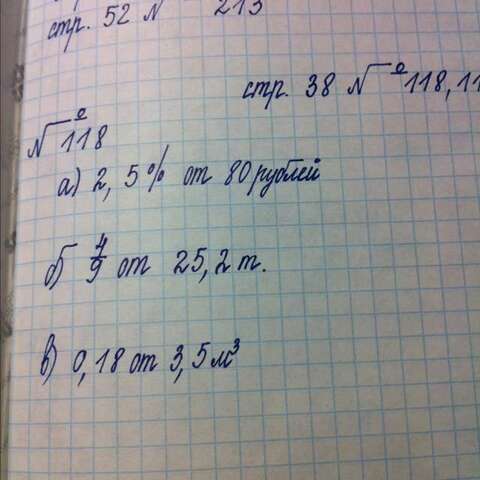 стр. 52 № 213
стр. 38 № 118, 11
№ 118
а) 2,5% от 80 рублей
б) 4/9 от 25,2 т.
в) 0,18 от 3,5 м³